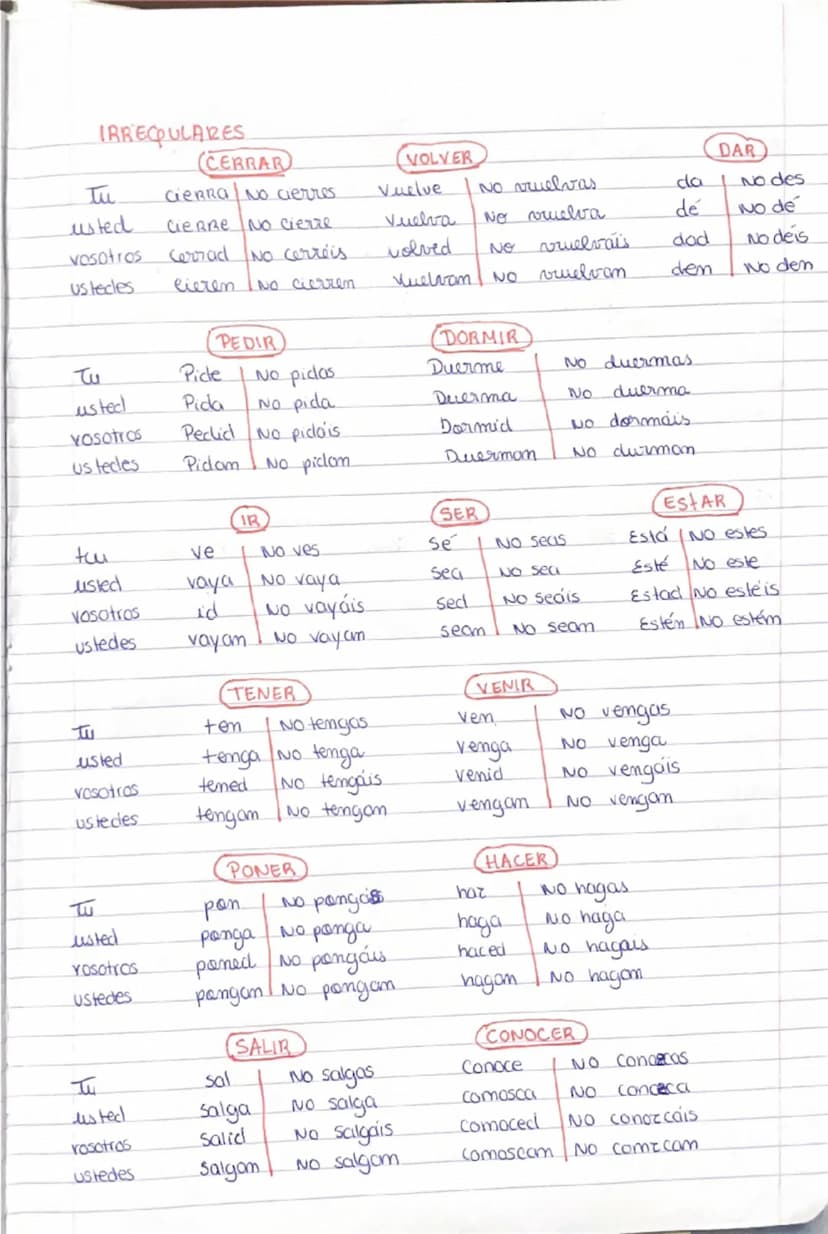 IRREGULARES
CERRAR VOLVER DAR
Tu cierra No cierres Vuelve No vuelvas da No des
usted cierre No cierre Vuelva No vuelva dé No dé
vosotros cerrad No cerréis volved No vuelváis dad No déis
ustedes cieren No cierren Vuelvam No vuelvam dem No den
PEDIR DORMIR
Tu Pide No pidas Duerme No duermas
usted Pida No pida Duerma No duerma
vosotros Pedid No pidáis Dormid No dormáis
ustedes Pidam No pidam Duermam No durmam
IR SER ESTAR
tu ve No ves Sé No seas Está No estes
usted vaya No vaya sea No sea Esté No este
vosotros id No vayáis sed No seáis Estad No estéis
ustedes vayam No vayam seam No seam Estén No estém
TENER VENIR
Tu ten No tengas ven No vengas
usted tenga No tenga venga No venga
vosotros tened No tengáis venid No vengáis
ustedes tengam No tengam vengam No vengam
PONER HACER
Tu pon No pongas haz No hagas
usted ponga No ponga haga No haga
vosotros poned No pongáis haced No hagáis
ustedes pongam No pongam hagam No hagam
SALIR CONOCER
Tu sal No salgas Conoce No conozcas
usted salga No salga comosca No conozca
vosotros salid No salgáis comoced No conozcáis
ustedes salgam No salgam comoscam No comzcam